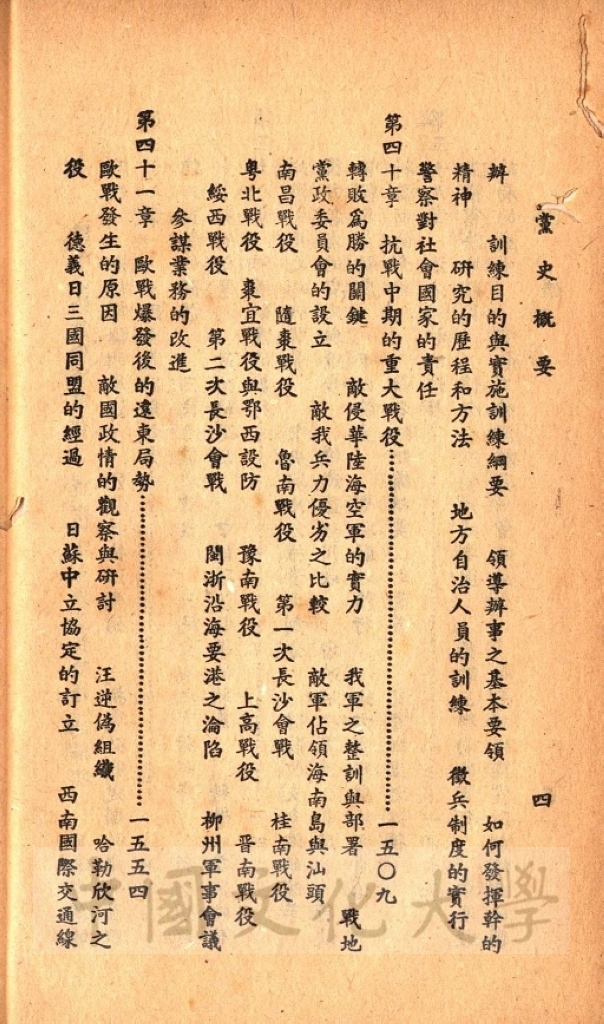 黨史概要
四
辦　訓練目的與實施訓練綱要　領導辦事之基本要領　如何發揮幹的
精神　研究的歷程和方法　地方自治人員的訓練　徵兵制度的實行
警察對社會國家的責任
第四十章　抗戰中期的重大戰役……一五〇九
轉敗爲勝的關鍵　敵侵華陸海空軍的實力　我軍之整訓與部署　戰地
黨政委員會的設立　敵我兵力優劣之比較　敵軍佔領海南島與汕頭
南昌戰役　隨棗戰役　魯南戰役　第一次長沙會戰　桂南戰役
粵北戰役　棗宜戰役與鄂西設防　豫南戰役　上高戰役　晋南戰役
綏西戰役　第二次長沙會戰　閩浙沿海要港之淪陷　柳州軍事會議
參謀業務的改進
第四十一章　歐戰爆發後的遠東局勢……一五五四
歐戰發生的原因　敵國政情的觀察與研討　汪逆僞組織　哈勒欣河之
役　德義日三國同盟的經過　日蘇中立協定的訂立　西南國際交通線
中國文化大學